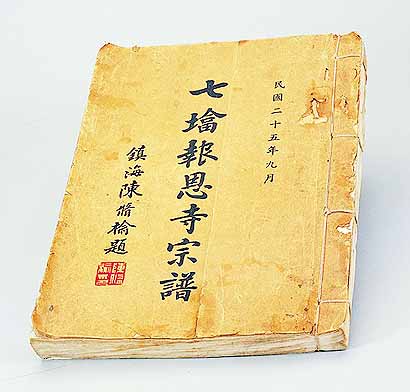 民國二十五年九月
七塔報恩寺宗譜
鎮海陳脩榆題